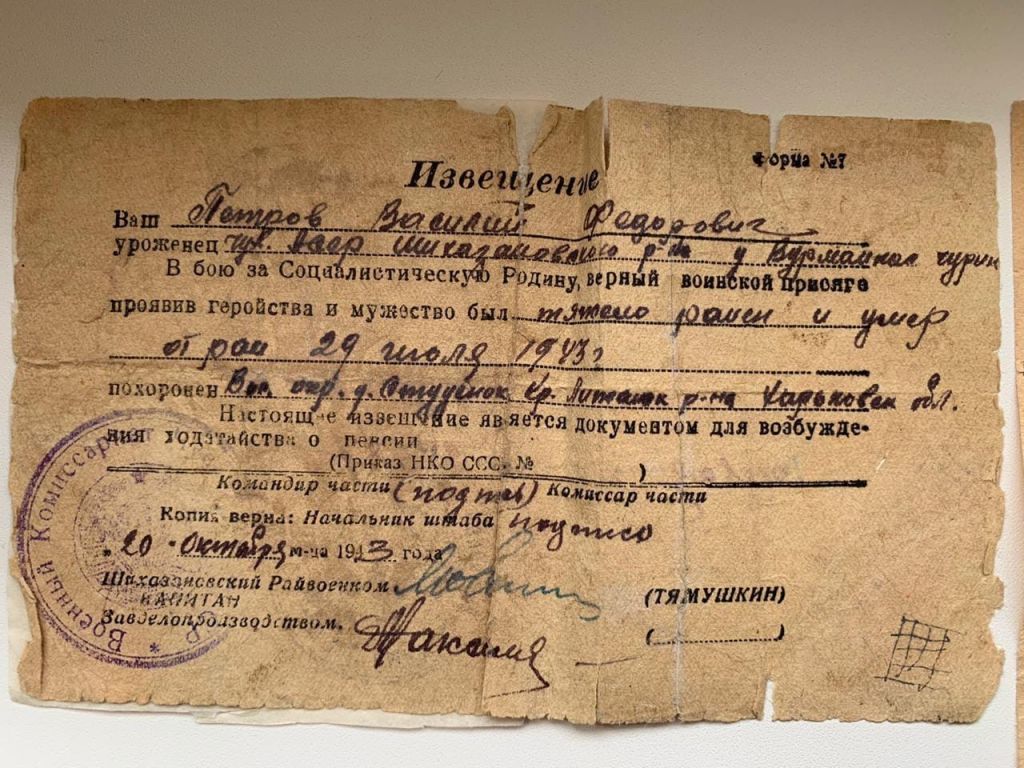 Форма №7
Извещение
Ваш Петров Василий Федорович
уроженец Чув. Асср Шихазановского р-на д
В бою за Социалистическую Родину, верный воинской присяге
проявив геройство и мужество был тяжело ранен и умер
от ран 29 июля 1943 г
похоронен д. Студенок р-на Харьковск обл.
Настоящее извещение является документом для возбужде-
ния ходатайства о пенсии
(Приказ НКО ССС. № )
Командир части (подпись) Комиссар части
Копия верна: Начальник штаба подпись
"20 Октября м-ца 1943 года
Шихазановский Райвоенком
КАПИТАН (ТЯМУШКИН)
Завделопроизводством.
Военный Комиссариат